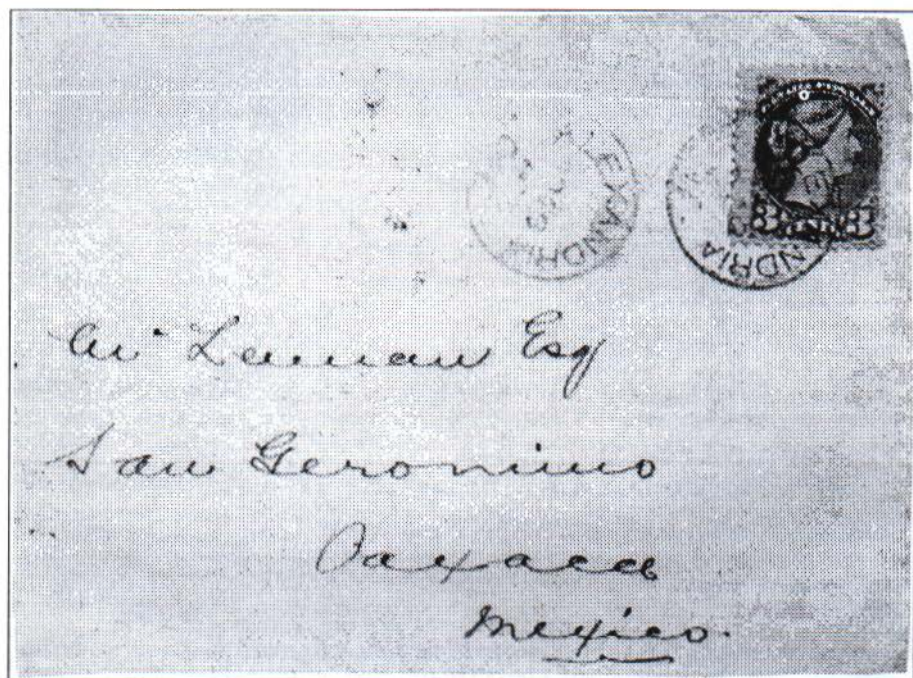 ALEXANDRIA
NDRIA
3 CENTS 3
Leman Esq
San Geronimo
Oaxaca
Mexico.